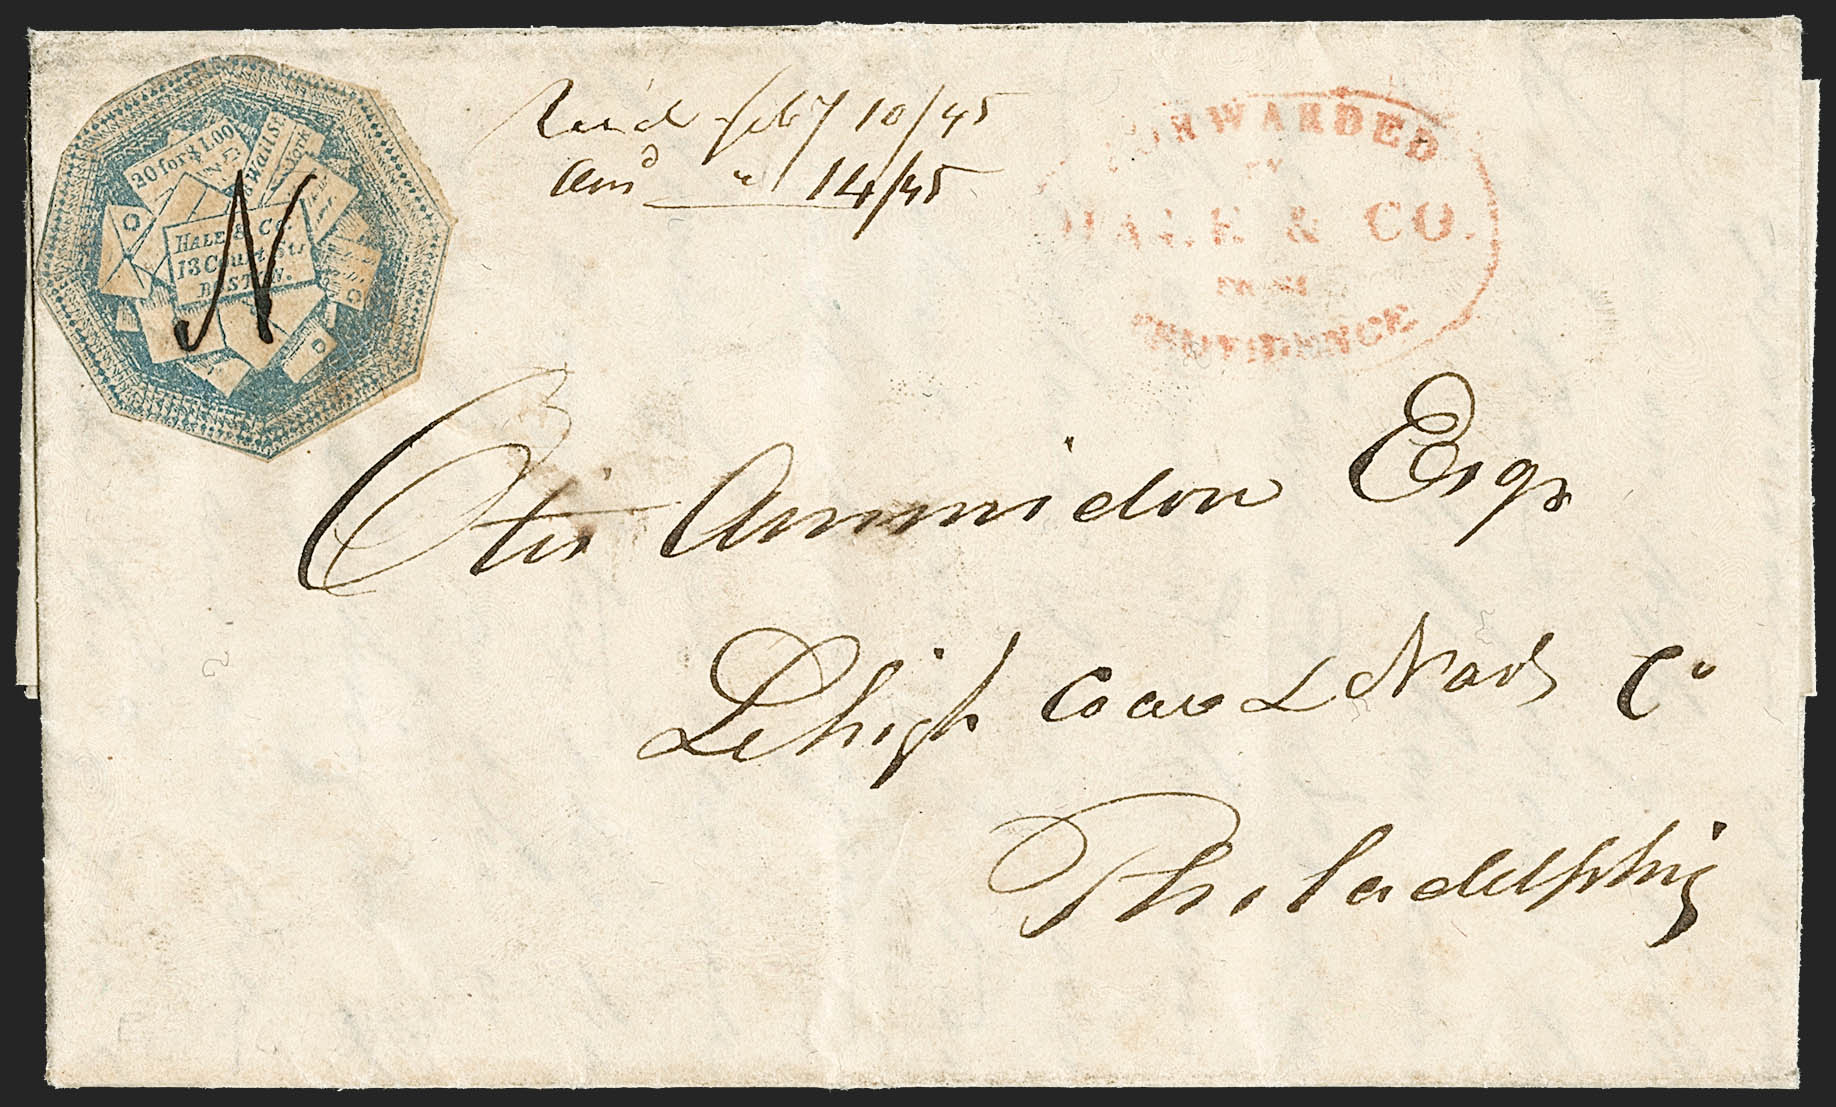 20 for $1.00
HALE & Co
13 Court Str
BOSTON.
N
Rec'd feby 10/45
Ans'd " 14/45
FORWARDED
BY
HALE & CO.
FROM
PROVIDENCE
Otis Ammidon Esqr
Lehigh Coal & Nav Co
Philadelphia